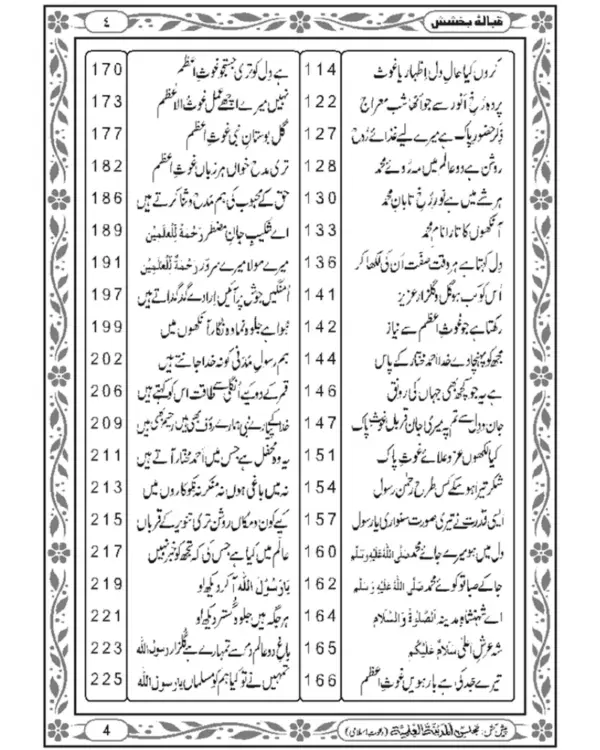 قبالۂ بخشش
٤
کروں کیا حالِ دل اِظہار یا غوث 114
پردہ رخِ اَنور سے جو اُٹھا شبِ معراج 122
ذِکرِ حضورِ پاک ہے میرے لیے غذائے رُوح 127
روشن ہے دو عالم میں مہ رُوئے محمد 128
ہر شے میں ہے نورِ رُخِ تابانِ محمد 130
آنکھوں کا تارا نامِ محمد 133
دِل کہتا ہے ہر وقت صفت اُن کی لکھا کر 136
اُس کو کب ہو گل و گلزار عزیز 141
رکھتا ہے جو غوثِ اعظم سے نیاز 142
مجھ کو پہنچا دے خدا احمد مختار کے پاس 144
ہے یہ جو کچھ بھی جہاں کی رونق 146
جان و دِل سے تم پہ میری جان قرباں غوثِ پاک 147
کیا لکھوں عز و علائے غوثِ پاک 151
شکر تیرا ہو سکے کس طرح رحمٰن رسول 154
ایسی قدرت نے تیری صورت سنواری یا رسول 157
دل میں ہو میرے جائے محمد صَلَّی اللہُ عَلَیْہِ وَسَلَّم 160
جا کے صبا تو کوئے محمد صَلَّی اللہُ عَلَیْہِ وَسَلَّم 162
اے شہنشاہِ مدینہ اَلصَّلٰوۃُ وَالسَّلَام 164
شہِ عرشِ اعلیٰ سَلَامٌ عَلَیْکُم 165
تیرے جد کی ہے بارہویں غوثِ اعظم 166
ہے دِل کو تری جستجو غوثِ اعظم 170
نہیں میرے اچھے عمل غوث الاعظم 173
گل بوستانِ نبی غوثِ اعظم 177
تری مدح خواں ہر زباں غوثِ اعظم 182
حق کے محبوب کی ہم مدح و ثنا کرتے ہیں 186
اے شکیبِ جانِ مضطر رَحْمَۃٌ لِّلْعٰلَمِیْں 189
میرے مولا میرے سرور رَحْمَۃٌ لِّلْعٰلَمِیْں 191
اُمنگیں جوش پر آئیں اِرادے گدگداتے ہیں 197
ہوا ہے جلوہ نما وہ نگار آنکھوں میں 199
ہم رسولِ مدنی کو نہ خدا جانتے ہیں 202
قمر کے دو کیے اُنگلی سے طاقت اس کو کہتے ہیں 206
خدا کے پیارے نبی ہمارے رؤف بھی ہیں رحیم بھی ہیں 209
یہ وہ محفل ہے جس میں احمد مختار آتے ہیں 211
نہ میں باغی ہوں نہ منکر نہ نکوکاروں میں 213
کیے کون و مکاں روشن تری تنویر کے قرباں 215
عالم میں کیا ہے جس کی کہ تجھ کو خبر نہیں 217
یَا رَسُوْلَ اللہ آ کر دیکھ لو 219
ہر جگہ ہیں جلوہ گستر دیکھ لو 221
باغِ دو عالم دم سے تمہارے ہے گلزار رسولُ اللہ 223
تمہیں نے تو کیا ہم کو مسلماں یا رسول اللہ 225
پیش کش: مجلس المدینۃ العلمیۃ (دعوت اسلامی)
4